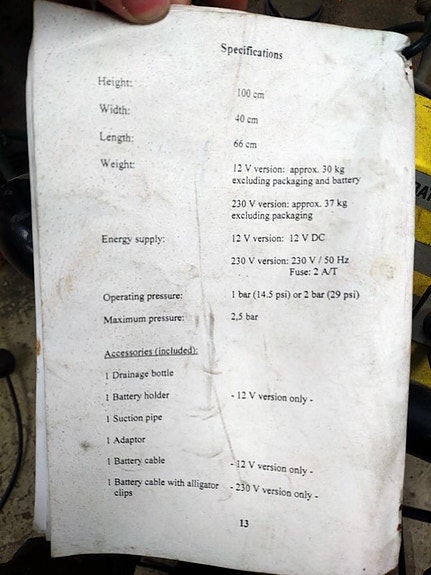 Specifications
Height: 100 cm
Width: 40 cm
Length: 66 cm
Weight: 12 V version: approx. 30 kg
excluding packaging and battery
230 V version: approx. 37 kg
excluding packaging
Energy supply: 12 V version: 12 V DC
230 V version: 230 V / 50 Hz
Fuse: 2 A/T
Operating pressure: 1 bar (14.5 psi) or 2 bar (29 psi)
Maximum pressure: 2,5 bar
Accessories (included):
1 Drainage bottle
1 Battery holder - 12 V version only -
1 Suction pipe
1 Adaptor
1 Battery cable - 12 V version only -
1 Battery cable with alligator - 230 V version only -
clips
13